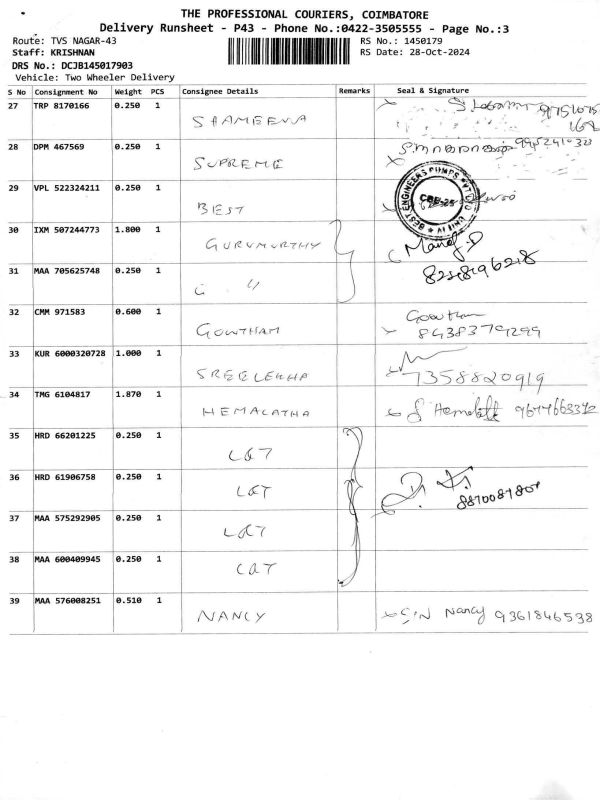 THE PROFESSIONAL COURIERS, COIMBATORE
Delivery Runsheet - P43 - Phone No.:0422-3505555 - Page No.:3
Route: TVS NAGAR-43 RS No.: 1450179
Staff: KRISHNAN RS Date: 28-Oct-2024
DRS No.: DCJB145017903
Vehicle: Two Wheeler Delivery
S No Consignment No Weight PCS Consignee Details Remarks Seal & Signature
27 TRP 8170166 0.250 1
SHAMEENA
28 DPM 467569 0.250 1
SUPREME
29 VPL 522324211 0.250 1
BEST ENGINEERS PUMPS PVT LTD
CBE-25
BEST
30 IXM 507244773 1.800 1
GURUMURTHY Manoj.D
31 MAA 705625748 0.250 1
G "
32 CMM 971583 0.600 1 Gowtham
GOWTHAM
33 KUR 6000320728 1.000 1
SREELEKHA 7358820919
34 TMG 6104817 1.870 1
HEMALATHA
35 HRD 66201225 0.250 1
L&T
36 HRD 61906758 0.250 1
L&T
37 MAA 575292905 0.250 1
L&T
38 MAA 600409945 0.250 1
L&T
39 MAA 576008251 0.510 1
NANCY Nancy 9361846538